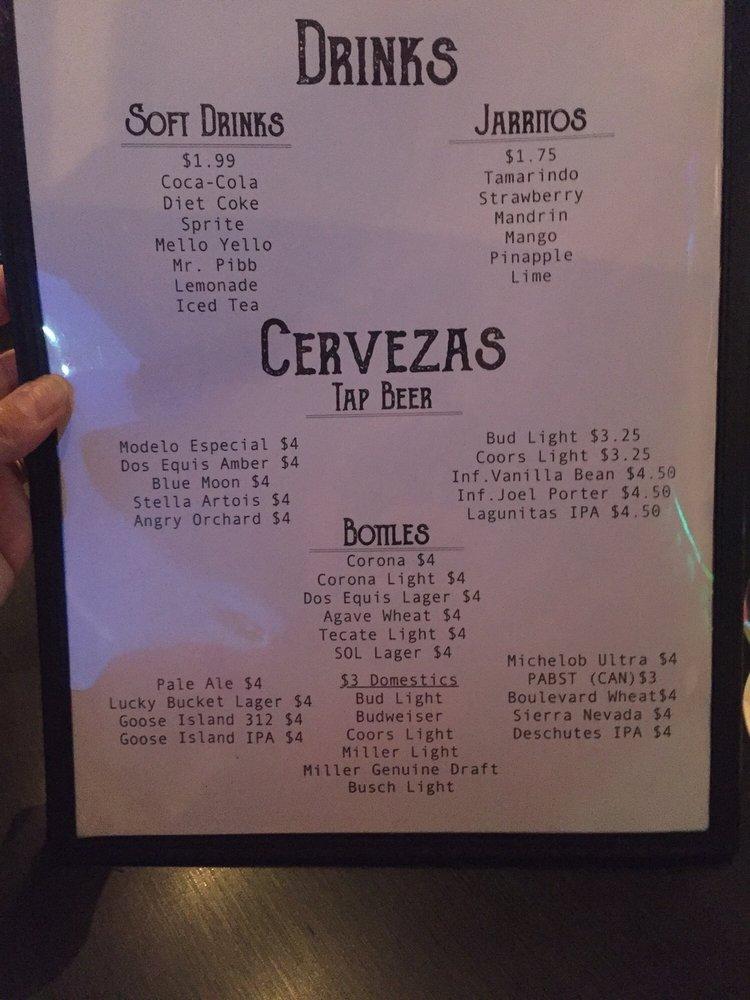 DRINKS
SOFT DRINKS
$1.99
Coca-Cola
Diet Coke
Sprite
Mello Yello
Mr. Pibb
Lemonade
Iced Tea
JARRITOS
$1.75
Tamarindo
Strawberry
Mandrin
Mango
Pinapple
Lime
CERVEZAS
TAP BEER
Modelo Especial $4
Dos Equis Amber $4
Blue Moon $4
Stella Artois $4
Angry Orchard $4
Bud Light $3.25
Coors Light $3.25
Inf.Vanilla Bean $4.50
Inf.Joel Porter $4.50
Lagunitas IPA $4.50
BOTTLES
Corona $4
Corona Light $4
Dos Equis Lager $4
Agave Wheat $4
Tecate Light $4
SOL Lager $4
Pale Ale $4
Lucky Bucket Lager $4
Goose Island 312 $4
Goose Island IPA $4
$3 Domestics
Bud Light
Budweiser
Coors Light
Miller Light
Miller Genuine Draft
Busch Light
Michelob Ultra $4
PABST (CAN)$3
Boulevard Wheat$4
Sierra Nevada $4
Deschutes IPA $4